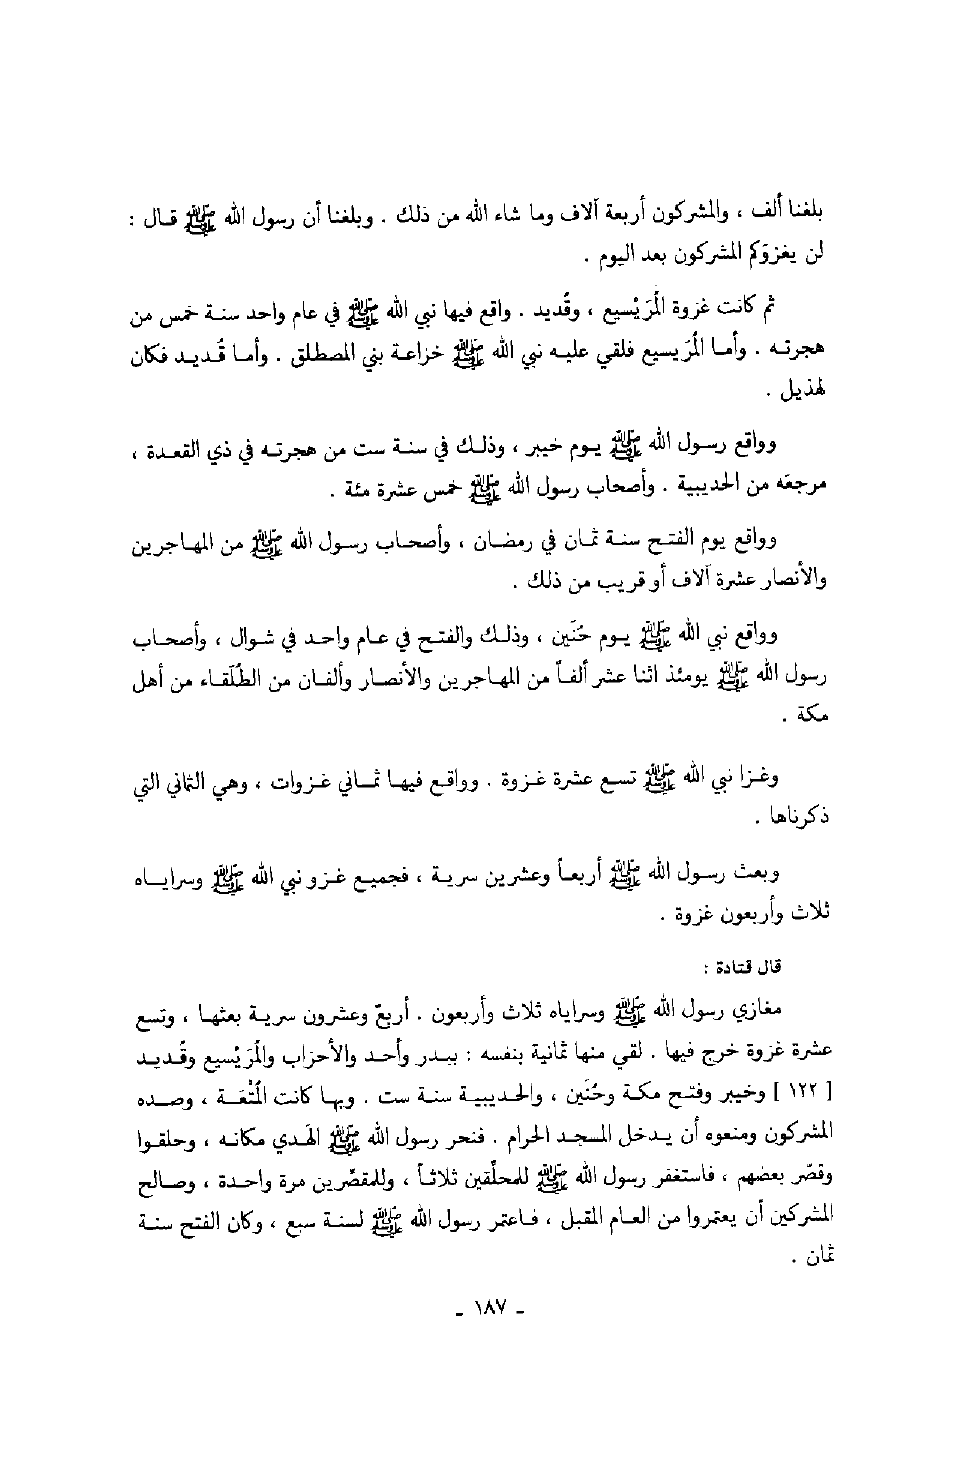 بلغنا ألف ، والمشركون أربعة آلاف وما شاء الله من ذلك . وبلغنا أن رسول الله ﷺ قال :
لن يغزوَكم المشركون بعد اليوم .
ثم كانت غزوة المُرَيْسيع ، وقُديد . واقع فيها نبي الله ﷺ في عام واحد سنة خمس من
هجرته . وأما المُرَيسيع فلقي عليه نبي الله ﷺ خزاعة بني المصطلق . وأما قُديد فكان
لهذيل .
وواقع رسول الله ﷺ يوم خيبر ، وذلك في سنة ست من هجرته في ذي القعدة ،
مرجعَه من الحديبية . وأصحاب رسول الله ﷺ خمس عشرة مئة .
وواقع يوم الفتح سنة ثمان في رمضان ، وأصحاب رسول الله ﷺ من المهاجرين
والأنصار عشرة آلاف أو قريب من ذلك .
وواقع نبي الله ﷺ يوم حُنَين ، وذلك والفتح في عام واحد في شوال ، وأصحاب
رسول الله ﷺ يومئذ اثنا عشر ألفاً من المهاجرين والأنصار وألفان من الطُلَقاء من أهل
مكة .
وغزا نبي الله ﷺ تسع عشرة غزوة . وواقع فيها ثماني غزوات ، وهي الثماني التي
ذكرناها .
وبعث رسول الله ﷺ أربعاً وعشرين سرية ، فجميع غزو نبي الله ﷺ وسراياه
ثلاث وأربعون غزوة .
قال قتادة :
مغازي رسول الله ﷺ وسراياه ثلاث وأربعون . أربعٌ وعشرون سرية بعثها ، وتسع
عشرة غزوة خرج فيها . لقي منها ثمانية بنفسه : ببدر وأحد والأحزاب والمُرَيْسيع وقُديد
[ ١٢٢ ] وخيبر وفتح مكة وحُنَين ، والحديبية سنة ست . وبها كانت المُتْعَة ، وصده
المشركون ومنعوه أن يدخل المسجد الحرام . فنحر رسول الله ﷺ الهَدي مكانه ، وحلقوا
وقصّر بعضهم ، فاستغفر رسول الله ﷺ للمحلّقين ثلاثاً ، وللمقصّرين مرة واحدة ، وصالح
المشركين أن يعتمروا من العام المقبل ، فاعتمر رسول الله ﷺ لسنة سبع ، وكان الفتح سنة
ثمان .
- ١٨٧ -